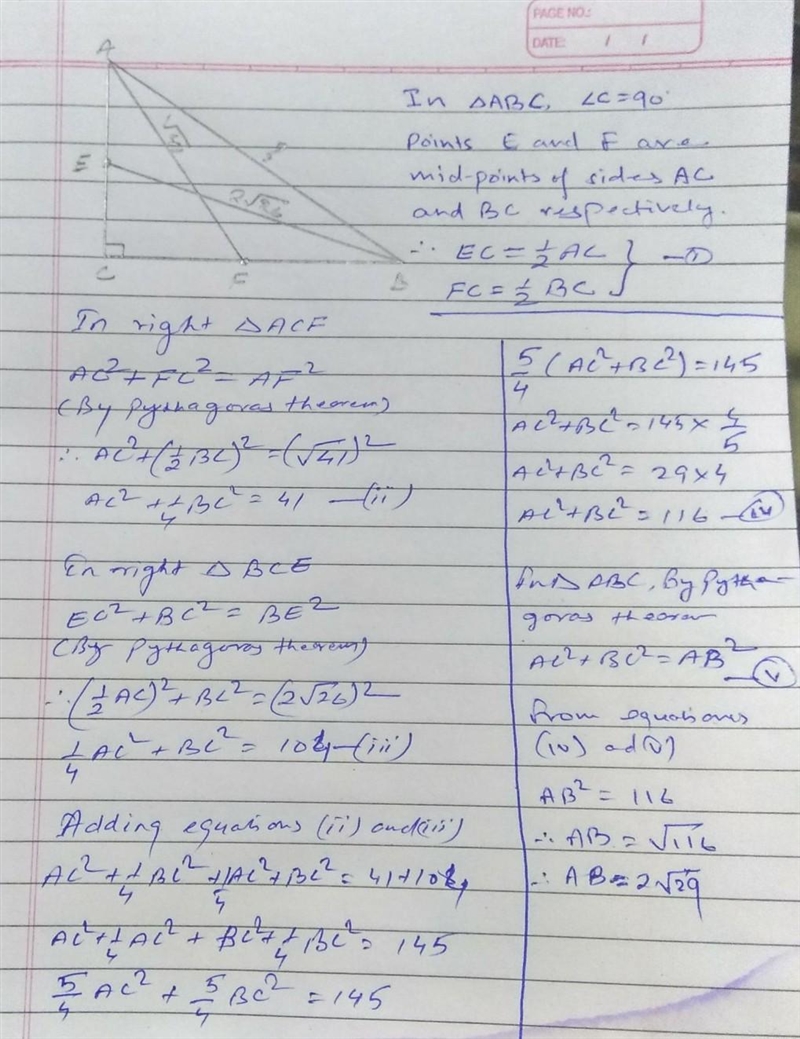 PAGE NO.:
DATE: / /
A
E
C
F
B
√41
2√26
In △ABC, ∠C=90°
Points E and F are
mid-points of sides AC
and BC respectively.
∴ EC = 1/2 AC } —(I)
FC = 1/2 BC
In right △ACF
AC² + FC² = AF²
(By Pythagoras theorem)
∴ AC² + (1/2 BC)² = (√41)²
AC² + 1/4 BC² = 41 —(ii)
In right △BCE
EC² + BC² = BE²
(By Pythagoras theorem)
∴ (1/2 AC)² + BC² = (2√26)²
1/4 AC² + BC² = 104 —(iii)
Adding equations (ii) and (iii)
AC² + 1/4 BC² + 1/4 AC² + BC² = 41+104
AC² + 1/4 AC² + BC² + 1/4 BC² = 145
5/4 AC² + 5/4 BC² = 145
5/4 (AC² + BC²) = 145
AC² + BC² = 145 × 4/5
AC² + BC² = 29 × 4
AC² + BC² = 116 —(iv)
In △ABC, By Pytha-
goras theorem
AC² + BC² = AB² —(v)
From equations
(iv) ad (v)
AB² = 116
∴ AB = √116
∴ AB = 2√29